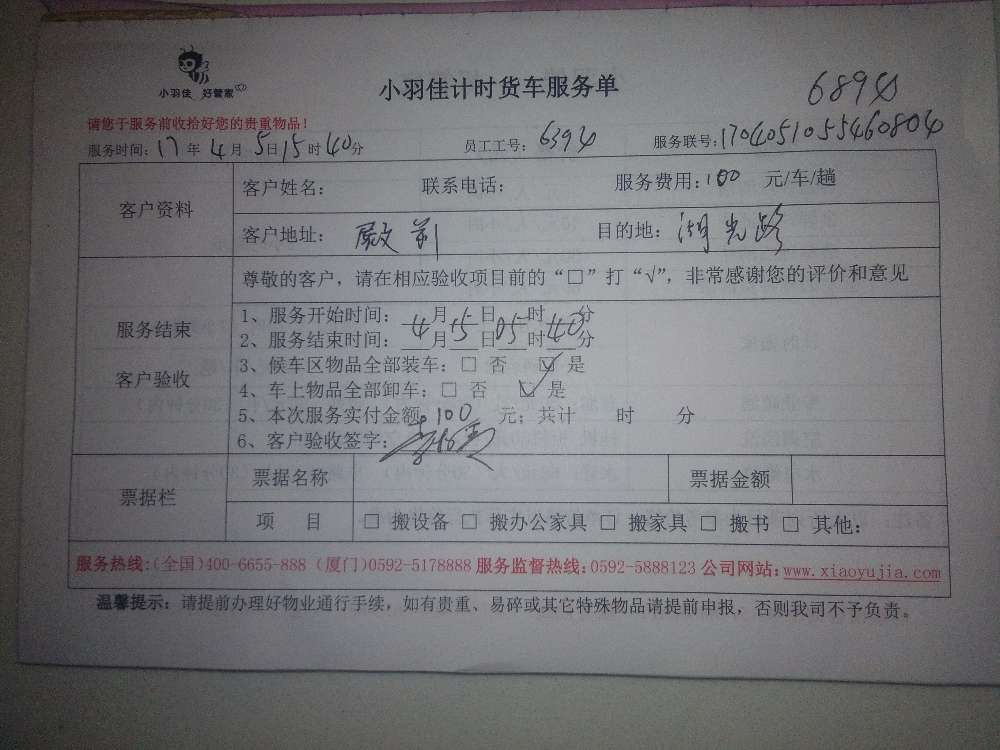 小羽佳 好管家
小羽佳计时货车服务单
请您于服务前收拾好您的贵重物品！
服务时间：17年4月5日15时40分 员工工号：6394 服务联号：1704051055460804
客户资料
客户姓名： 联系电话： 服务费用：100 元/车/趟
客户地址：殿前 目的地：湖光路
服务结束
客户验收
尊敬的客户，请在相应验收项目前的“□”打“√”，非常感谢您的评价和意见
1、服务开始时间： 月 日 时 分
2、服务结束时间：4月5日05时40分
3、候车区物品全部装车：□ 否 ☑ 是
4、车上物品全部卸车：□ 否 ☑ 是
5、本次服务实付金额：100 元；共计 时 分
6、客户验收签字：
票据栏
票据名称 票据金额
项 目 □ 搬设备 □ 搬办公家具 □ 搬家具 □ 搬书 □ 其他：
服务热线:(全国)400-6655-888 (厦门)0592-5178888 服务监督热线:0592-5888123 公司网站:www.xiaoyujia.com
温馨提示：请提前办理好物业通行手续，如有贵重、易碎或其它特殊物品请提前申报，否则我司不予负责。